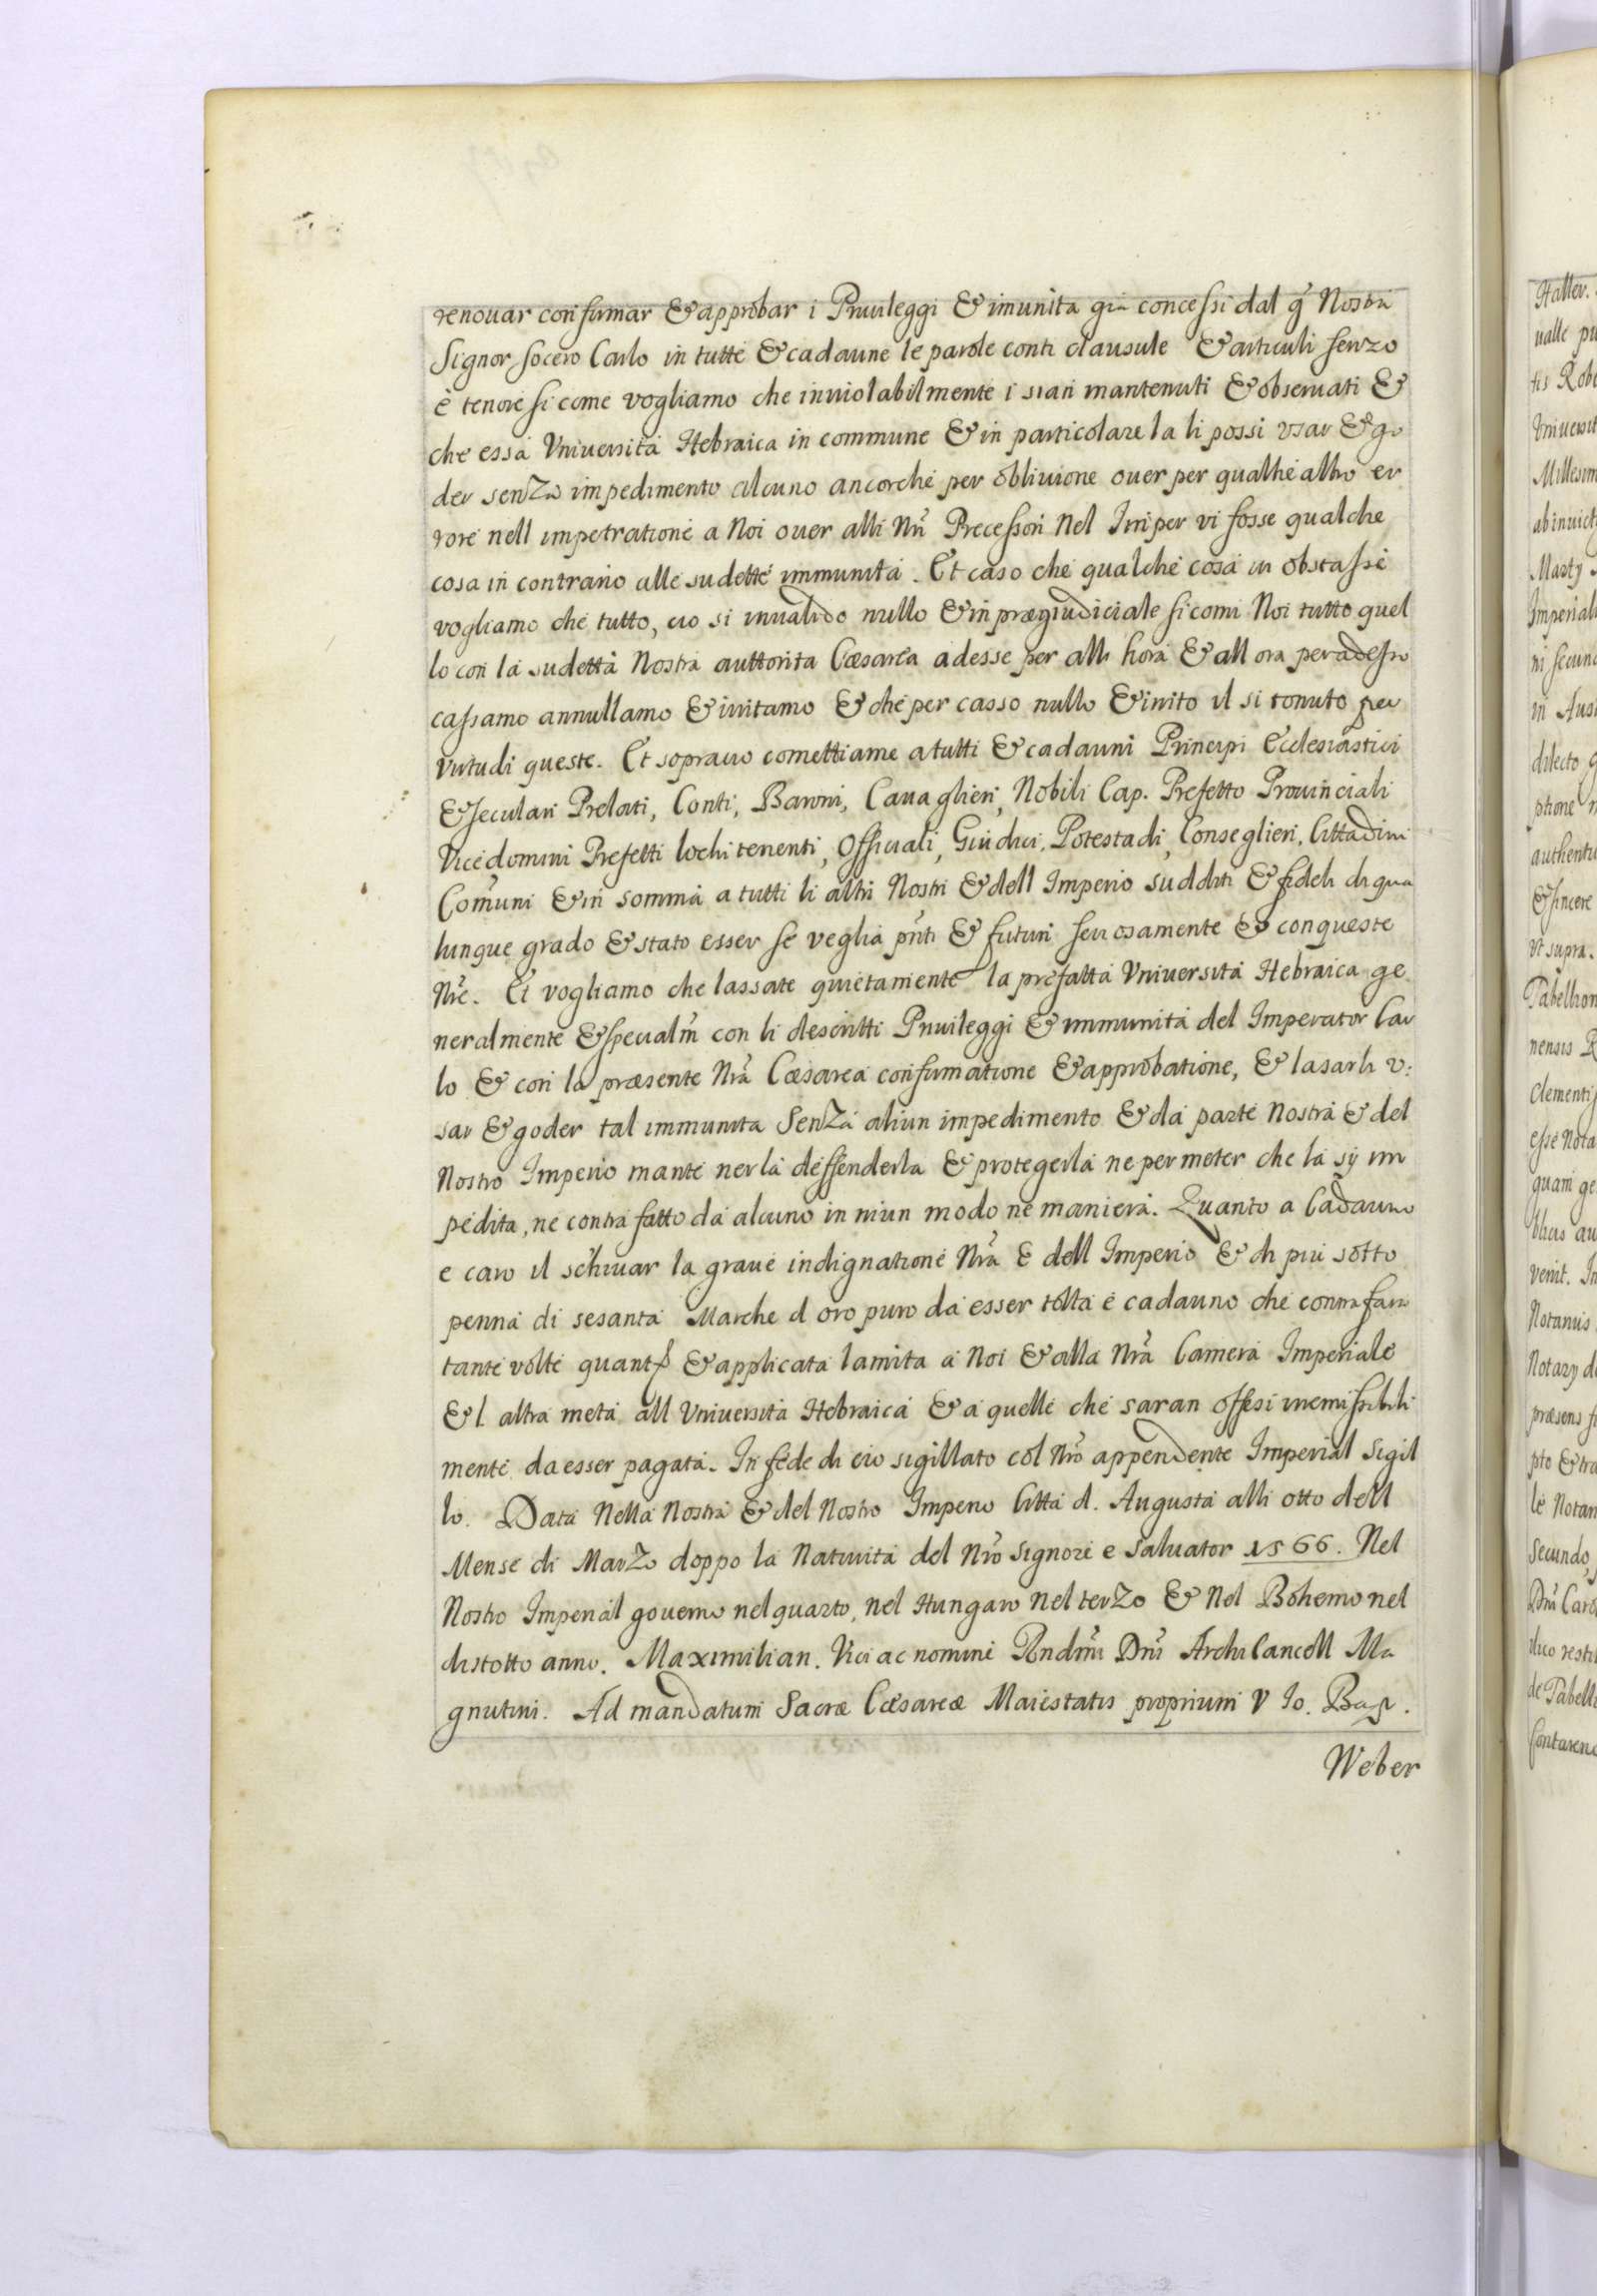 renouar confirmar & approbar i Priuileggi & imunita gia concessi dal q Nostro
Signor socero Carlo in tutte & cadaune le parole conti clausule & articuli senzo
è tenore si come vogliamo che inuiolabilmente i sian mantenuti & obseruati &
che essa Vniuersità Hebraica in commune & in particolare la li possi vsar & go
der senza impedimento alcuno ancorche per obliuione ouer per qualhe altro er
rore nell impetratione a Noi ouer alli Nri Precessori Nel Imper vi fosse qualche
cosa in contrario alle sudette immunita. Et caso che qualche cosa in obstasse
vogliamo che tutto, cio si inualido nullo & in prægiudiciale si comi Noi tutto quel
lo con la sudetta Nostra auttorita Cæsarea adesse per alli hora & all ora per adesso
cassamo annullamo & iritamo & che per casso nullo & irrito il si tenuto per
virtu di queste. Et sopra cio comettiame a tutti & cadauni Principi Ecclesiastici
& Seculari Prelati, Conti, Baroni, Cauaglieri, Nobili Cap. Prefetto Prouinciali
Vicedomini Prefetti lochi tenenti, Officiali, Giudici, Potestadi, Conseglieri, Cittadini
Comuni & in somma a tutti li altri Nostri & dell Imperio sudditi & fideli di qua
lunque grado & stato esser se veglia pnti & futuri seriosamente & con queste
Nre. Et vogliamo che lassate quietamente la prefatta Vniuersità Hebraica ge
neralmente & specialm con li descritti Priuileggi & immunità del Imperator Car
lo & con la præsente Nra Cæsarea confirmatione & approbatione, & lasarli v:
sar & goder tal immunita senza aliun impedimento & da parte Nostra & del
Nostro Imperio mante nerla deffenderla & protegerla ne permeter che la sij im
pedita, ne contra fatto da alcuno in niun modo ne maniera. Quanto a Cadauno
e caro il schiuar la graue indignatione Nra e dell Imperio & di piu sotto
penna di sesanta Marche d oro puro da esser tolta e cadauno che contrafara
tante volte quant & applicata la mita a Noi & alla Nra Camera Imperiale
& l altra metà all Vniuersità Hebraica & a quelle che saran offesi irremissibili
mente da esser pagata. In fede di cio sigillato col Nro appendente Imperial Sigil
lo. Data Nella Nostra & del Nostro Imperio Città d. Augusta alli otto dell
Mense di Marzo doppo la Natiuità del Nro Signore e Saluator 1566. Nel
Nostro Imperial gouerno nel quarto, nel Hungaro nel terzo & Nel Bohemo nel
distotto anno. Maximilian. Vici ac nomine Rndmi Dni Archi Cancell Ma
gnutini. Ad mandatum Sacræ Cæsareæ Maiestatis proprium V Io. Bap.
Weber